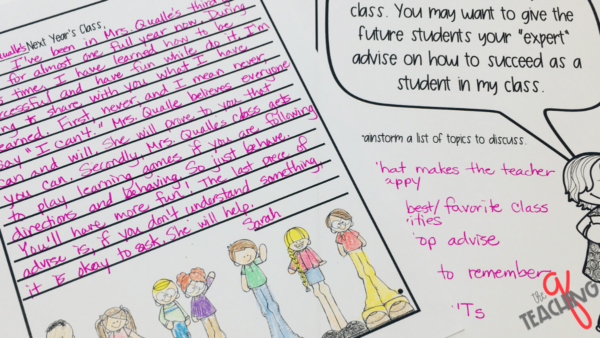 Next Year's Class,
I've been in Mrs. Qualle's third
for almost one full year now. During
time, I have learned how to be
successful and have fun while I do it. I'm
to share with you what I have
learned. First, never, and I mean never
say "I can't." Mrs. Qualle believes everyone
can and will. She will prove to you that
you can. Secondly, Mrs. Qualle's class gets
to play learning games if you are following
directions and behaving. So just behave.
You'll have more fun! The last piece of
advise is, if you don't understand something,
it is okay to ask. She will help.
Sarah
class. You may want to give the
future students your "expert"
advise on how to succeed as a
student in my class.
ainstorm a list of topics to discuss.
hat makes the teacher
appy
best/favorite class
ities
op advise
to remember
'Ts
the
TEACHING